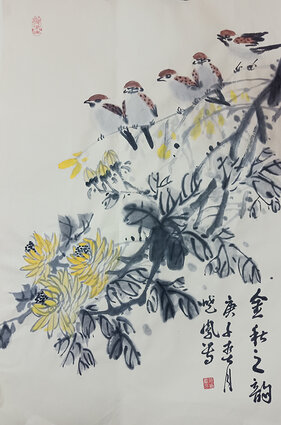 金秋之韵
庚子春月
晓鳳写